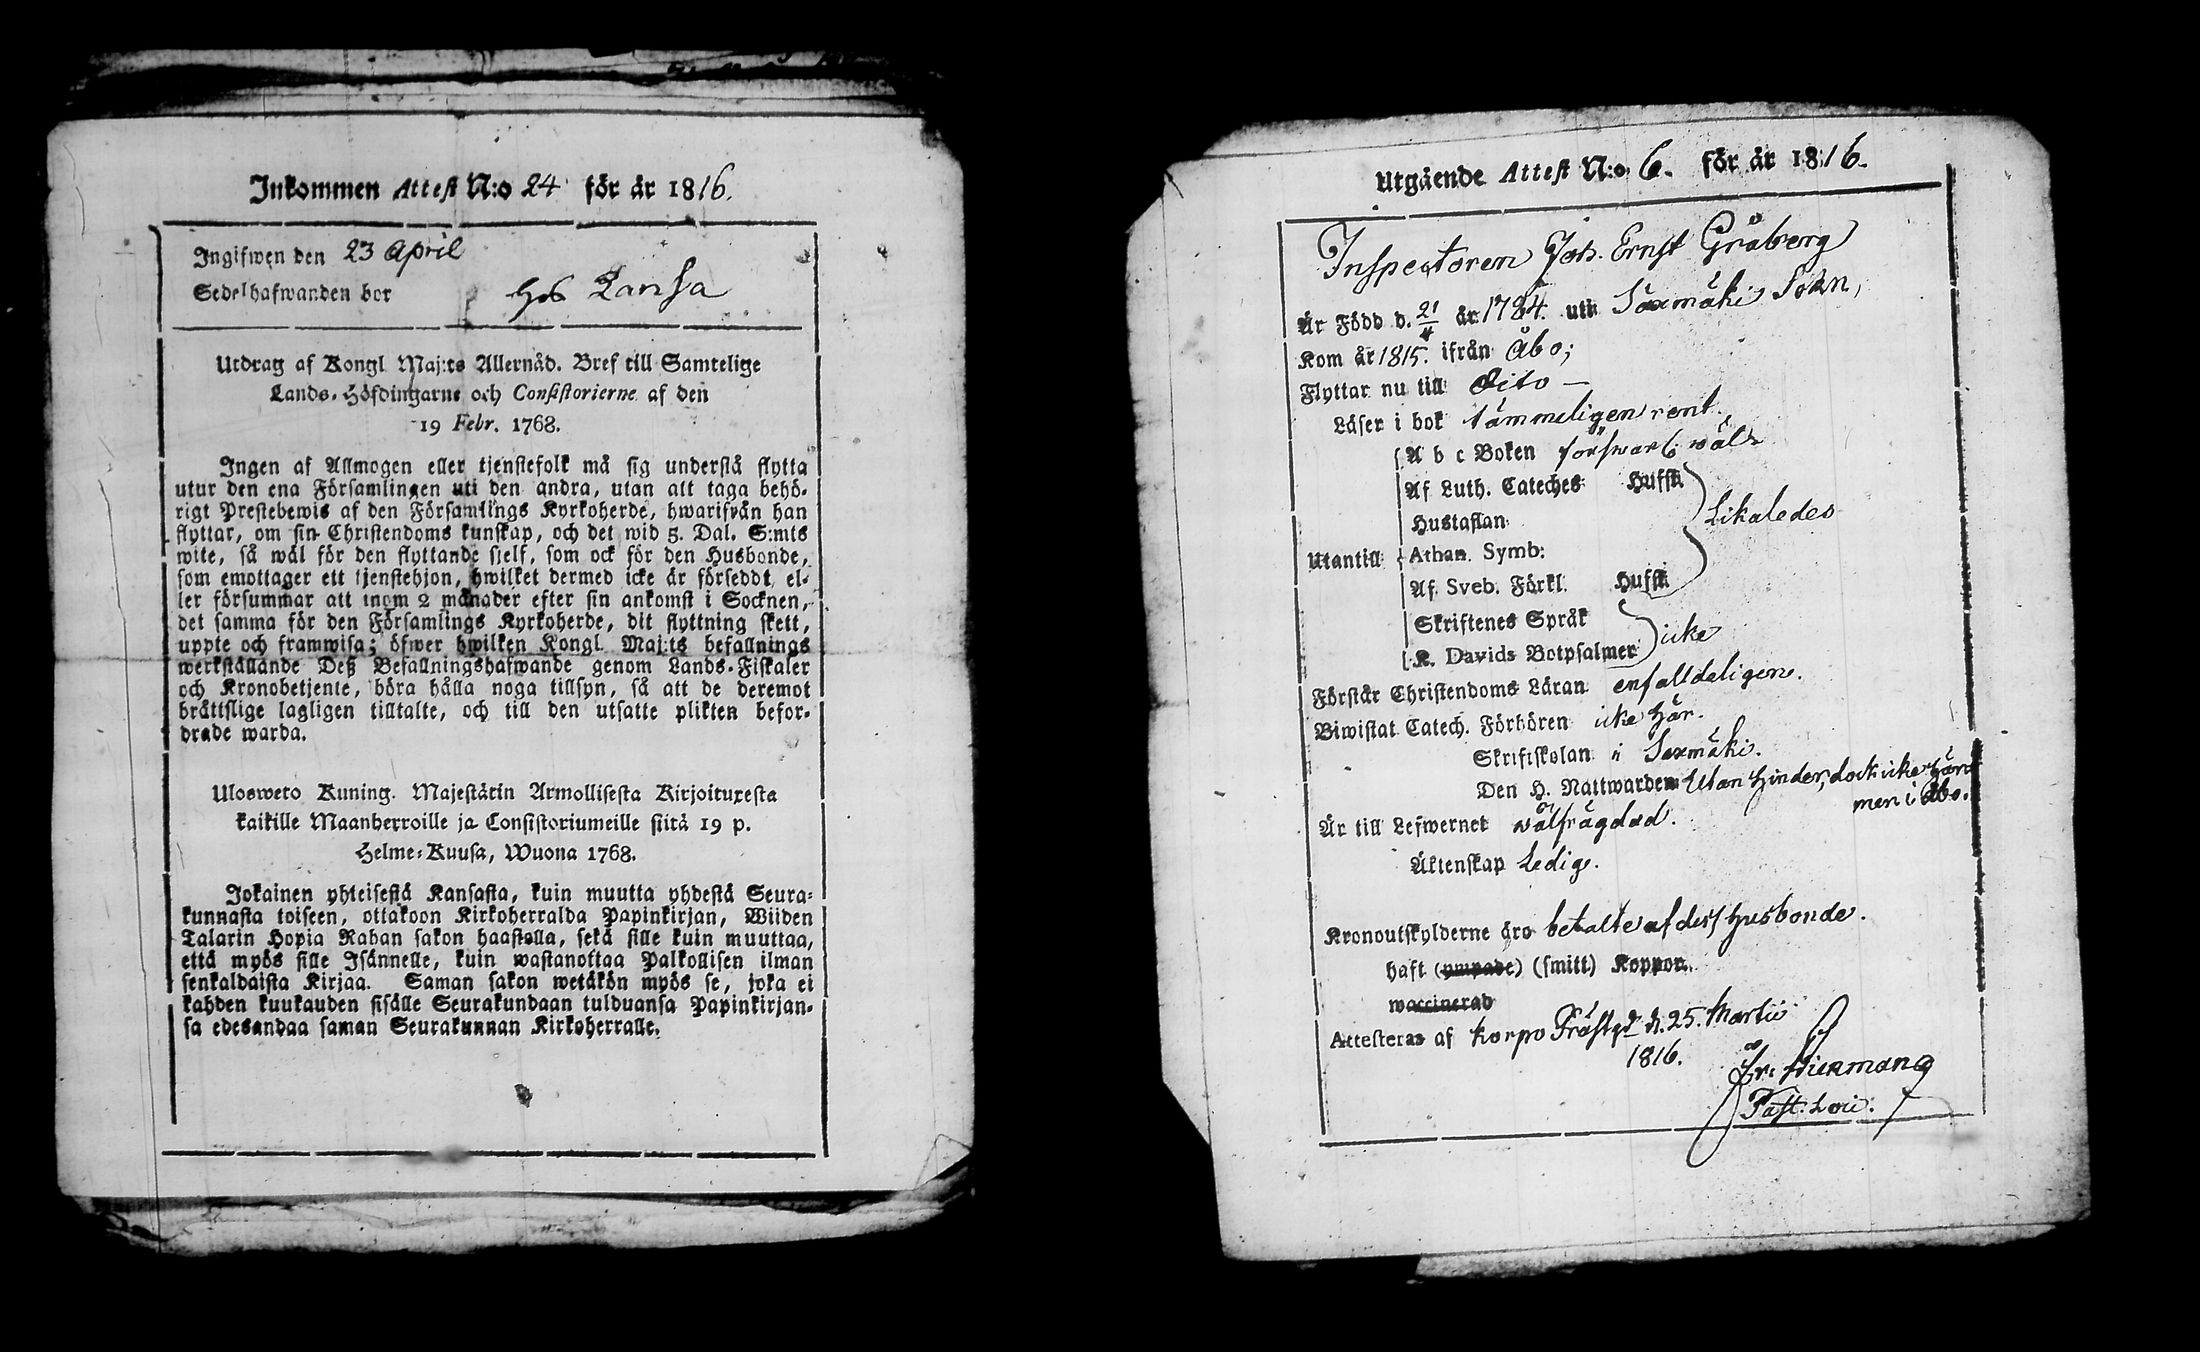 Inkommen Attest N:o 24 för år 1816.
Ingifwen den 23 April
Sedelhafwanden bor hos Lansa
Utdrag af Kongl. Maj:ts Allernåd. Bref till Samtelige
Lands-Höfdingarne och Consistorierne af den
19 Febr. 1768.
Ingen af Allmogen eller tjenstefolk må sig understå flytta
utur den ena Församlingen uti den andra, utan att taga behö-
rigt Prestebewis af den Församlings Kyrkoherde, hwarifrån han
flyttar, om sin Christendoms kunskap, och det wid 5. Dal. S:mts
wite, så wäl för den flyttande sielf, som ock för den Husbonde,
som emottager ett tjenstehjon, hwilket dermed icke är försedt, el-
ler försummar att inom 2 månader efter sin ankomst i Socknen,
det samma för den Församlings Kyrkoherde, dit flyttning skett,
uppte och framwisa; öfwer hwilken Kongl. Maj:ts befallnings
werkställande Deß Befallningshafwande genom Lands-Fiskaler
och Kronobetjente, böra hålla noga tillsyn, så att de deremot
bråttslige lagligen tilltalte, och till den utsatte plikten befor-
drade warda.
Ulosweto Kuning. Majestätin Armollisesta Kirjoituxesta
kaikille Maanherroille ja Consistoriumeille siitä 19 p.
Helme-Kuusa, Wuona 1768.
Jokainen yhteisestä Kansasta, kuin muutta yhdestä Seura-
kunnasta toiseen, ottakoon Kirkoherralda Papinkirjan, Wiiden
Talarin Hopia Rahan sakon haastolla, sekä sille kuin muuttaa,
että myös sille Isännelle, kuin wastanottaa Palkollisen ilman
senkaldaista Kirjaa. Saman sakon wetäkön myös se, joka ei
kahden kuukauden sisälle Seurakundaan tulduansa Papinkirjan-
sa edesandaa saman Seurakunnan Kirkoherralle.
Utgående Attest N:o 6. för år 1816.
Inspectoren Joh. Ernst Gråberg
Är Född d. 21/4 år 1784. uti Säxmäki Sokn,
Kom år 1815. ifrån Åbo;
Flyttar nu till dito —
Läser i bok tämmeligen rent.
A b c Boken försvarl. wäl
Af Luth. Cateches Huffst.
Hustaflan
Likaledes
Utantill Athan. Symb:
Af Sveb. Förkl. Huffst.
Skriftenes Språk
icke
K. Davids Botpsalmer
Förstår Christendoms Läran enfalldeligen.
Biwistat Catech. Förhören icke här.
Skriftskolan i Säxmäki.
Den H. Nattwarden Utan hinder, dock icke här
men i Åbo.
Är till Lefwernet wälfrägdad.
Äktenskap Ledig.
Kronoutskylderne äro betalte af dess husbonde.
haft (ympade) (smitt) Koppor.
waccinerad
Attesteras af Korpo Prästgd d. 25. Martii
1816.
Past. Loci.